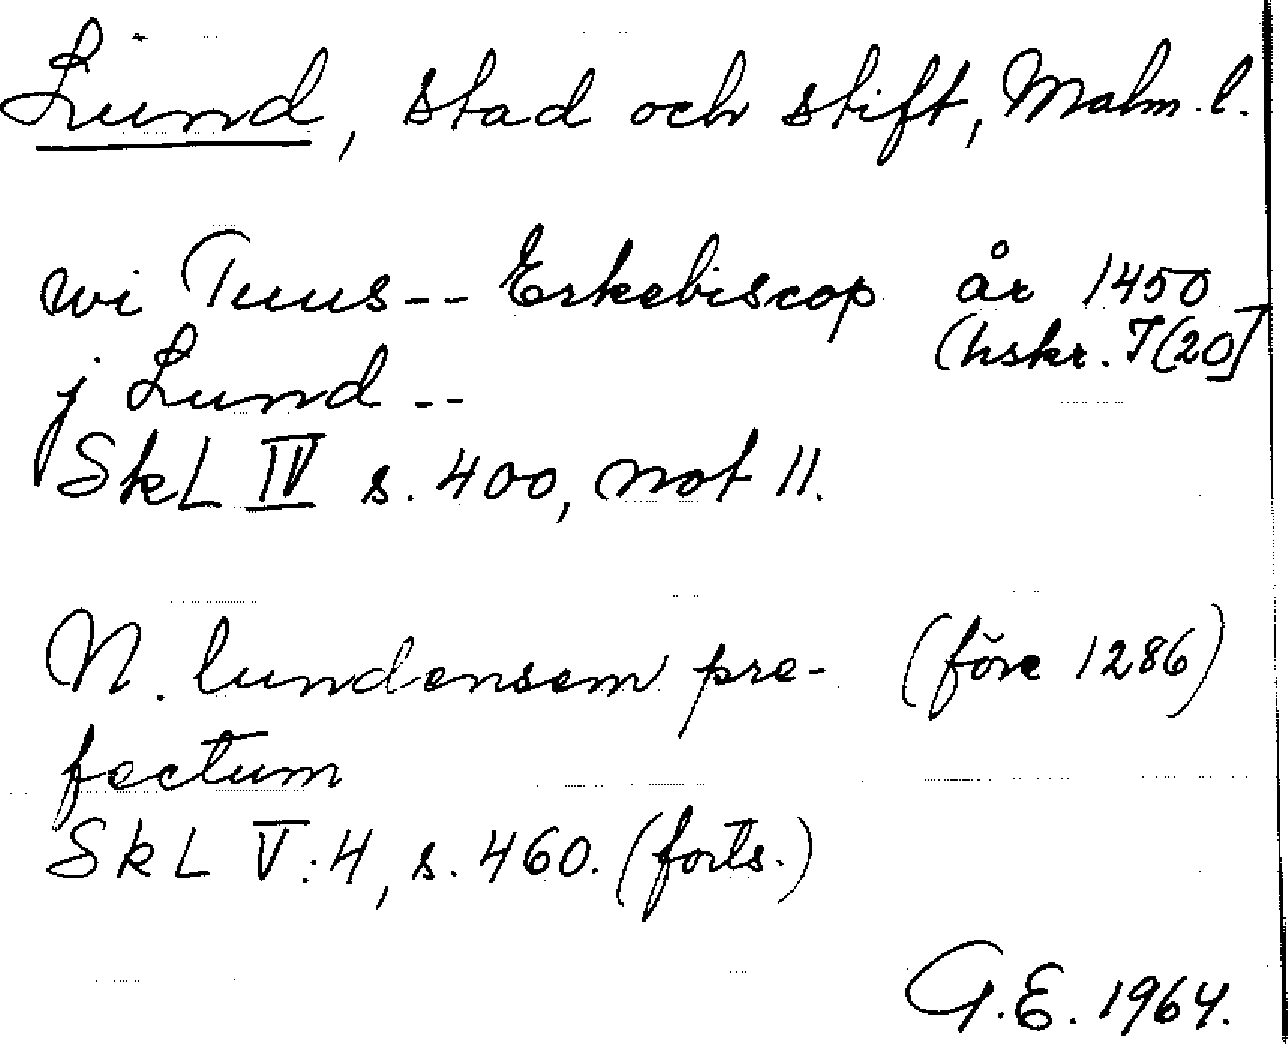 Lund, stad och stift, Malm. l.
wi Tuus-- Erkebiscop år 1450
j Lund-- (hskr. I(20]
SkL IV s. 400, not 11.
N. lundensem pre- (före 1286)
fectum
SkL V:4, s. 460. (forts.)
G.E. 1964.